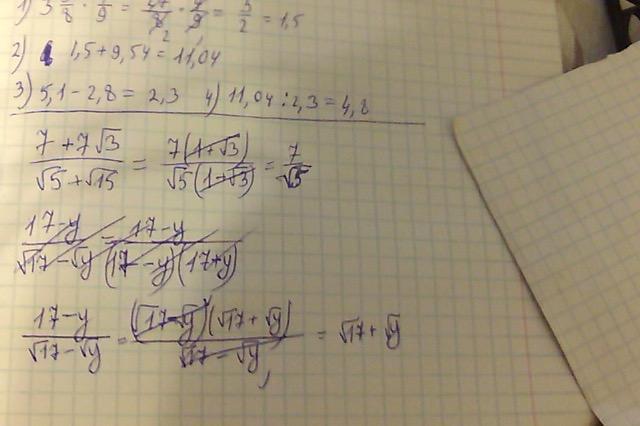 1) 3 3/8 · 4/9 = 27/8 · 4/9 = 3/2 = 1,5
2) 1,5 + 9,54 = 11,04
3) 5,1 - 2,8 = 2,3 4) 11,04 : 2,3 = 4,8
(7 + 7√3)/(√5 + √15) = 7(1+√3)/√5(1+√3) = 7/√5
(17-y)/(√17 - √y) = (17-y)/(17-y)(17+y)
(17-y)/(√17-√y) = (√17-√y)(√17+√y)/(√17-√y) = √17+√y